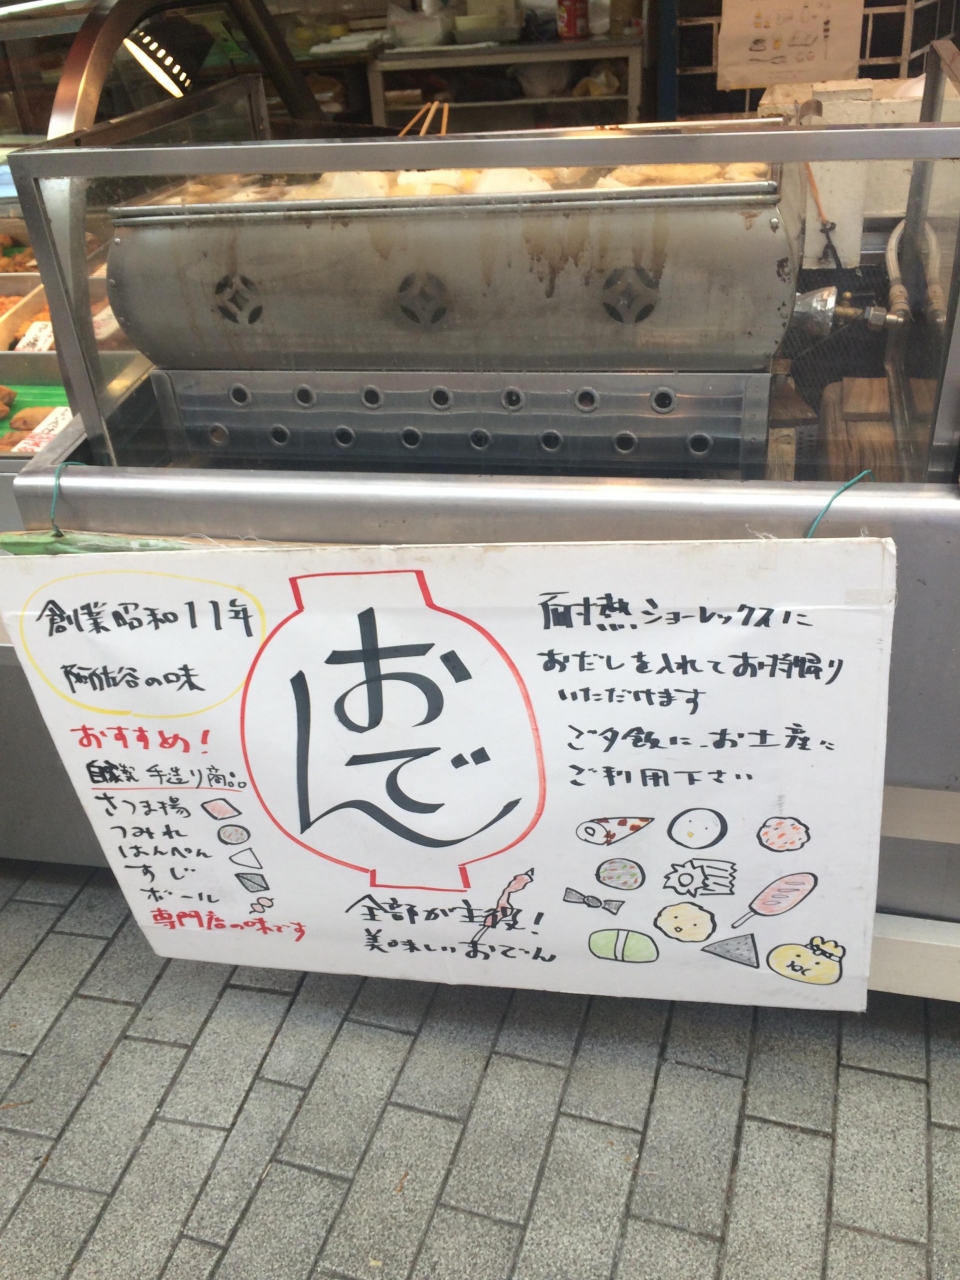 創業昭和11年
阿佐谷の味
おすすめ!
自家製 手造り商品
さつま揚
つみれ
はんぺん
すじ
ボール
専門店の味です
おでん
全部が主役!
美味しいおでん
耐熱ショーレックスに
おだしを入れてお持帰り
いただけます
ご夕飯に、お土産に
ご利用下さい